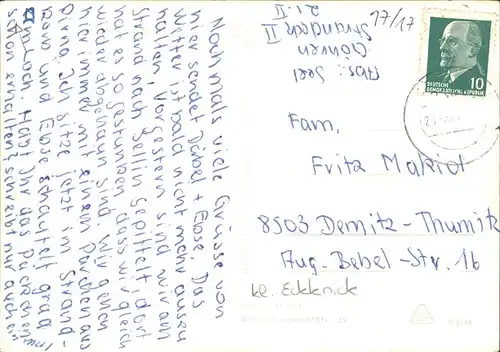 Nochmals viele Grüsse von
hier sendet Bärbel + Ebse. Das
Wetter ist bald nicht mehr auszu
halten. Vorgestern sind wir am
Strand nach Sellin gepilgert, dort
hat es so gestunken, dass wir gleich
wieder abgehaun sind. Wir gehen
hier immer mit einem Pärchen aus
Pirna. Ich sitze jetzt im Strand-
korb und Ebse schaufelt grad
ein Loch. Habt Ihr das Päckchen
schon erhalten, schreibt nur auch
Abs.: Seel
Göhren
Strandkorb
17/17
DEUTSCHE
DEMOKRATISCHE REPUBLIK
10
Fam,
Fritz Makiol
8503 Demitz-Thumitz
Aug.-Bebel-Str. 16